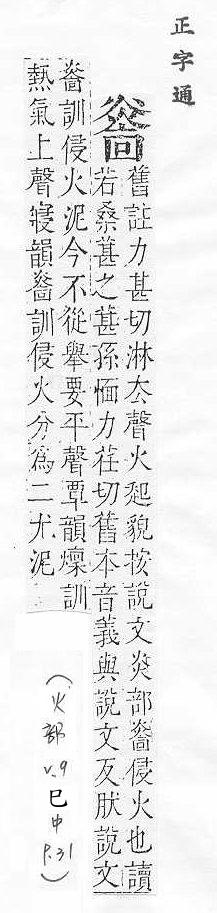 正字通
舊註力甚切淋厺聲火起貌按說文炎部侵火也讀
若桑葚之葚孫愐力荏切舊本音義與說文反肰說文
訓侵火泥今不從舉要平聲覃韻燣訓
熱氣上聲寑韻訓侵火分為二尤泥
（火部 v.9 巳中 P.31）